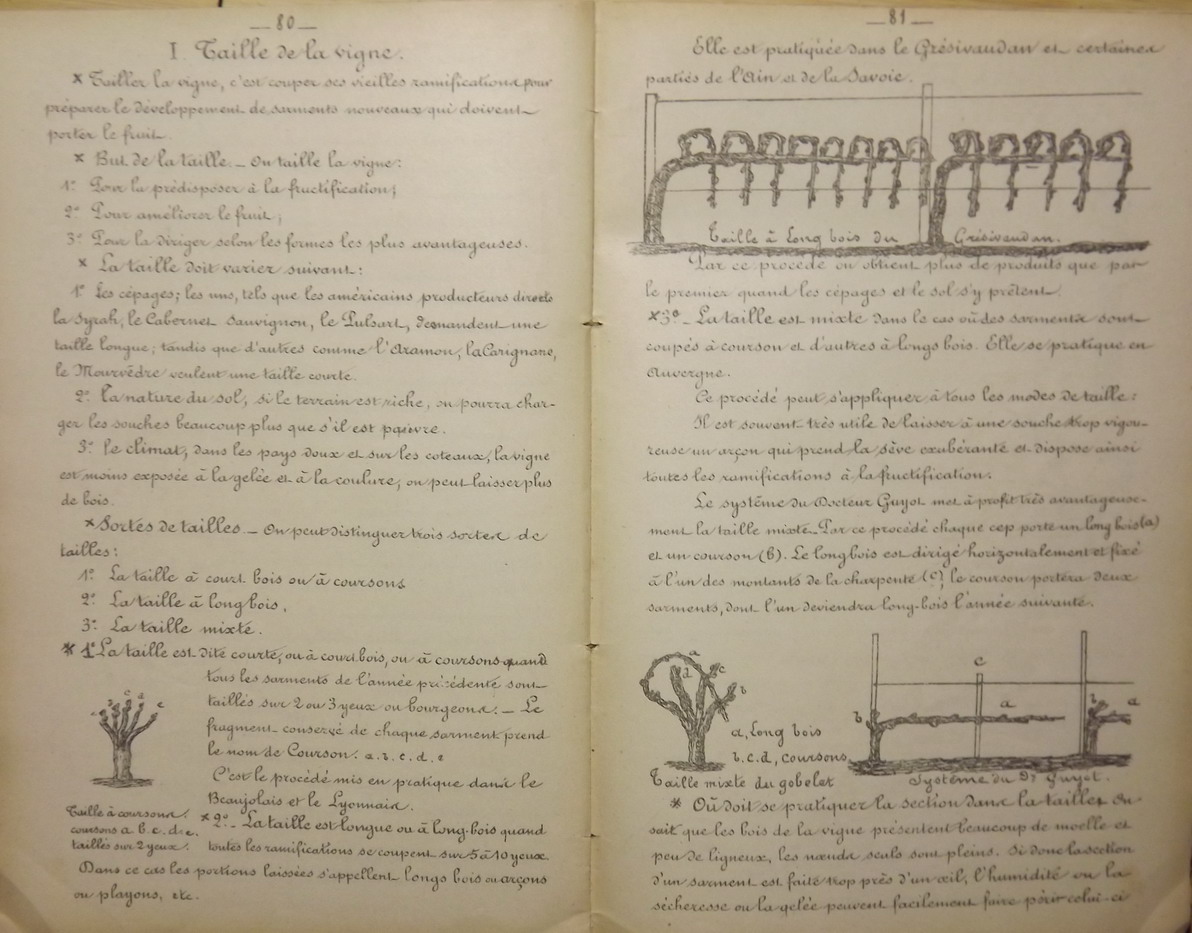 — 80 —
I Taille de la vigne.
x Tailler la vigne, c'est couper ses vieilles ramifications pour
préparer le développement de sarments nouveaux qui doivent
porter le fruit.
x But de la taille. — On taille la vigne:
1º Pour la prédisposer à la fructification;
2º Pour améliorer le fruit;
3º Pour la diriger selon les formes les plus avantageuses.
x La taille doit varier suivant:
1º Les cépages; les uns, tels que les américains producteurs directs
la Syrah, le Cabernet Sauvignon, le Pulsart, demandent une
taille longue; tandis que d'autres comme l'Aramon, la Carignane,
le Mourvèdre veulent une taille courte.
2º la nature du sol, si le terrain est riche, on pourra char-
ger les souches beaucoup plus que s'il est pauvre.
3º le climat, dans les pays doux et sur les coteaux, la vigne
est moins exposée à la gelée et à la coulure, on peut laisser plus
de bois.
x Sortes de tailles. — On peut distinguer trois sortes de
tailles:
1º La taille à court bois ou à coursons
2º La taille à long bois.
3º La taille mixte.
x 1º La taille est dite courte, ou à court bois, ou à coursons quand
tous les sarments de l'année précédente sont
taillés sur 2 ou 3 yeux ou bourgeons. — Le
fragment conservé de chaque sarment prend
le nom de Courson. a. b. c. d. e
C'est le procédé mis en pratique dans le
Beaujolais et le Lyonnais.
a b c d e
Taille à coursons.
coursons a. b. c. d. e.
taillés sur 2 yeux.
x 2º — La taille est longue ou à long-bois quand
toutes les ramifications se coupent sur 5 à 10 yeux.
Dans ce cas les portions laissées s'appellent longs bois ou arçons
ou playons, etc.
— 81 —
Elle est pratiquée dans le Grésivaudan et certaines
parties de l'Ain et de la Savoie.
Taille à long bois du Grésivaudan.
Par ce procédé on obtient plus de produits que par
le premier quand les cépages et le sol s'y prêtent.
x 3º — La taille est mixte dans le cas où des sarments sont
coupés à courson et d'autres à longs bois. Elle se pratique en
Auvergne.
Ce procédé peut s'appliquer à tous les modes de taille:
Il est souvent très utile de laisser à une souche trop vigou-
reuse un arçon qui prend la sève exubérante et dispose ainsi
toutes les ramifications à la fructification.
Le système du Docteur Guyot met à profit très avantageuse-
ment la taille mixte. Par ce procédé chaque cep porte un long bois (a)
et un courson (b). Le long bois est dirigé horizontalement et fixé
à l'un des montants de la charpente (c), le courson portera deux
sarments, dont l'un deviendra long-bois l'année suivante.
a d c b
a, long bois
b. c. d, coursons
Taille mixte du gobelet
b c a b a
Système du Dr Guyot.
x Où doit se pratiquer la section dans la taille. On
sait que les bois de la vigne présentent beaucoup de moelle et
peu de ligneux, les nœuds seuls sont pleins. Si donc la section
d'un sarment est faite trop près d'un œil, l'humidité ou la
sécheresse ou la gelée peuvent facilement faire périr celui-ci